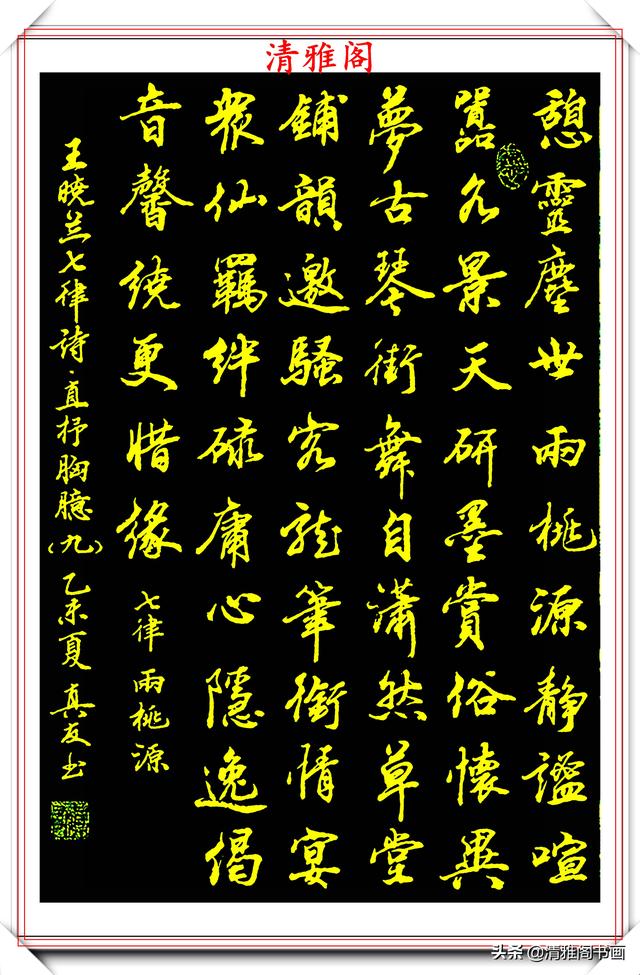 清雅阁
憩靈塵世雨桃源静謐喧
囂各景天研墨賞俗懷異
夢古琴街舞自瀟然草堂
鋪韻邀騷客龍筆銜情宴
衆仙羈絆碌庸心隱逸偈
音馨繞更惜緣 七律 雨桃源
王曉兰七律詩·直抒胸臆(九) 乙未夏 真友书
头条 @清雅阁书画